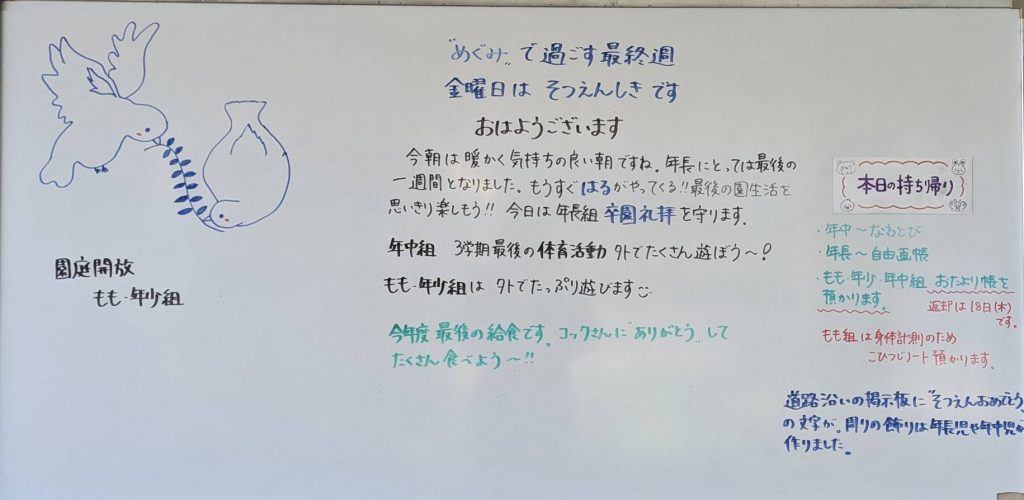 "めぐみ〟で過ごす最終週
金曜日は そつえんしきです
おはようございます
今朝は暖かく気持ちの良い朝ですね。年長にとっては最後の
一週間となりました。もうすぐはるがやってくる!!最後の園生活を
思いきり楽しもう!! 今日は年長組 卒園礼拝を守ります。
年中組 3学期最後の体育活動 外でたくさん遊ぼう〜!
もも・年少組は 外でたっぷり遊びます
今年度 最後の給食です。コックさんに"ありがとう〟して
たくさん食べよう〜!!
園庭開放
もも・年少組
本日の持ち帰り
・年中〜なわとび
・年長〜自由画帳
・もも・年少・年中組 おたより帳を
預かります。
返却は18日(木)
です。
もも組は身体計測のため
こひつじノート預かります。
道路沿いの掲示板に"そつえんおめでとう〟
の文字が。周りの飾りは年長児や年中児が
作りました。